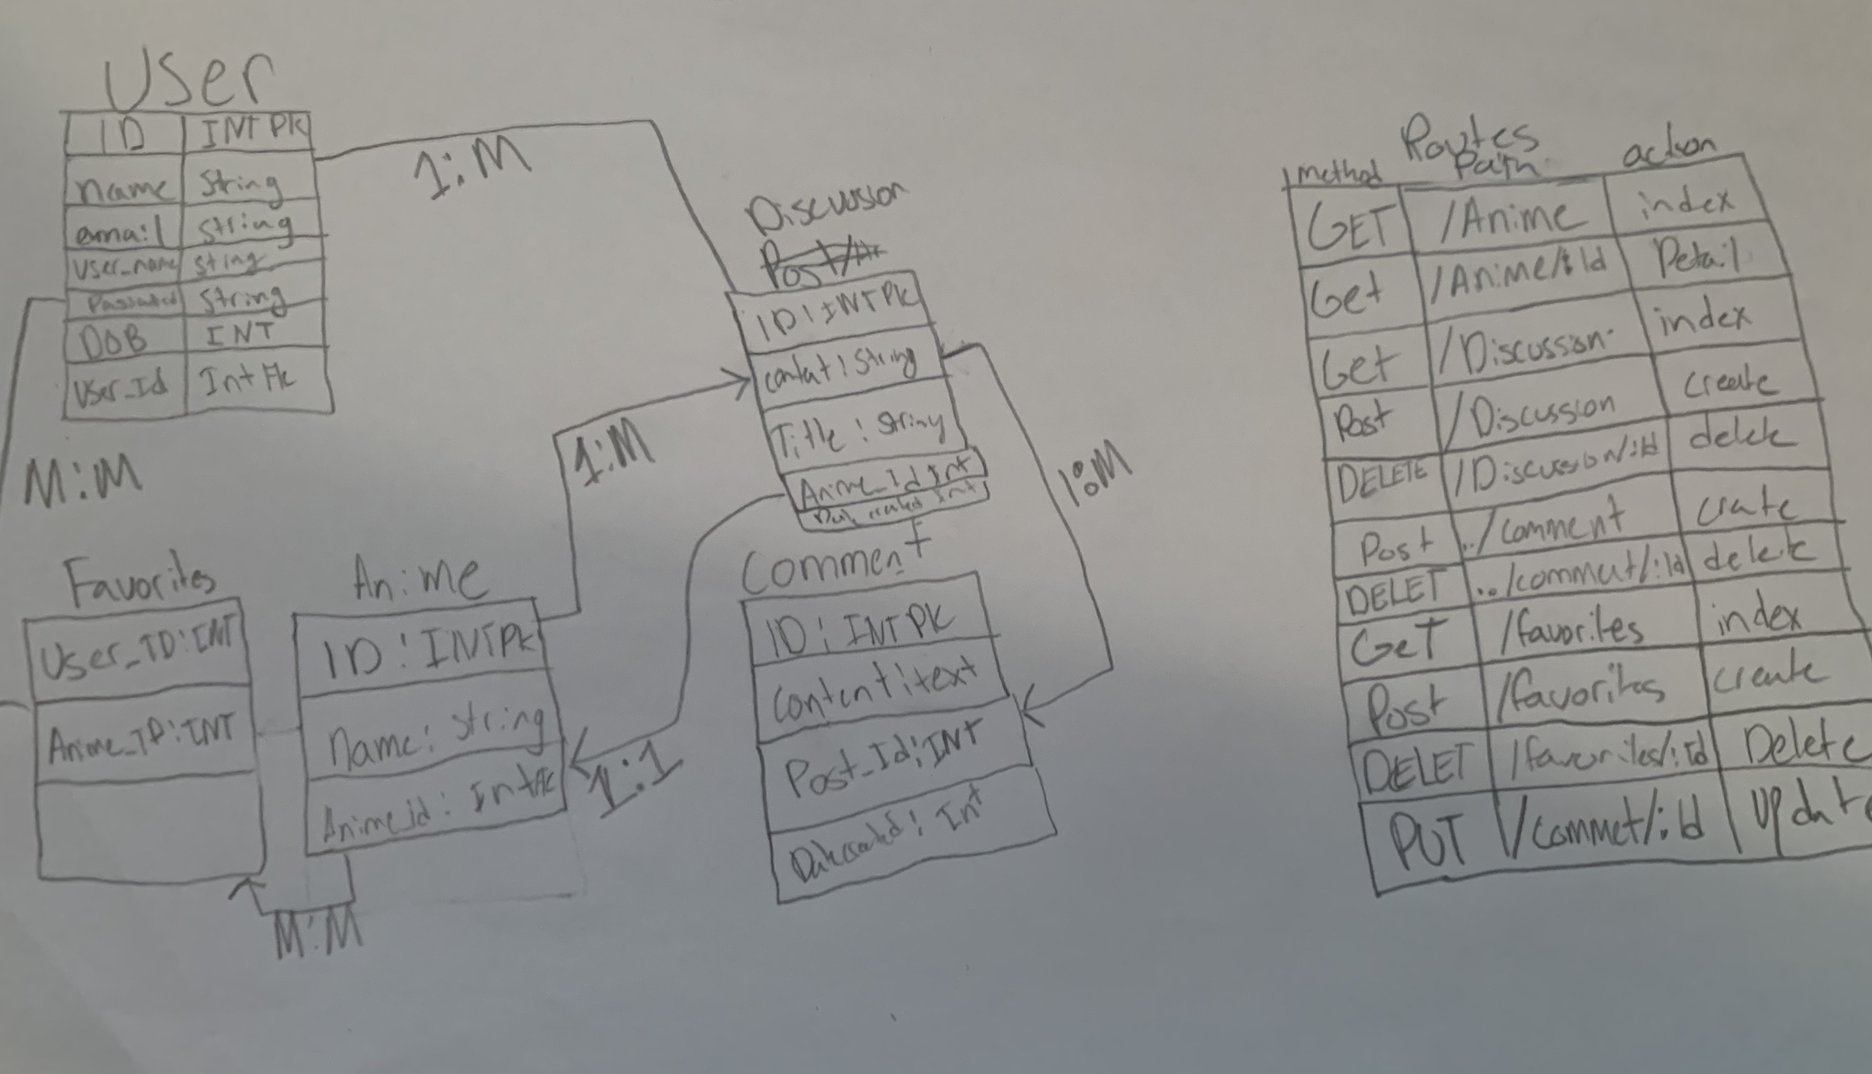 User
ID INT PK
name String
email String
User_name sting
Password String
DOB INT
User_Id Int Fk
1:M
M:M
Discussion
Post/
ID: INT PK
String
Title: String
Anime_Id Int
Int
1:M
1:M
1:1
Favorites
User_ID: INT
Anime_ID: INT
Anime
ID: INT PK
Name: String
Anime_id: Int FK
M:M
Comment
ID: INT PK
Content: text
Post_Id: INT
Int
Routes
method Path action
GET /Anime index
Get /Anime/:Id Detail
Get /Discussion index
Post /Discussion create
DELETE /Discussion/:Id delete
Post ../comment crate
DELET ../commut/:Id delete
GeT /favorites index
Post /favorites create
DELET /favorites/:Id Delete
PUT /commet/:Id Update